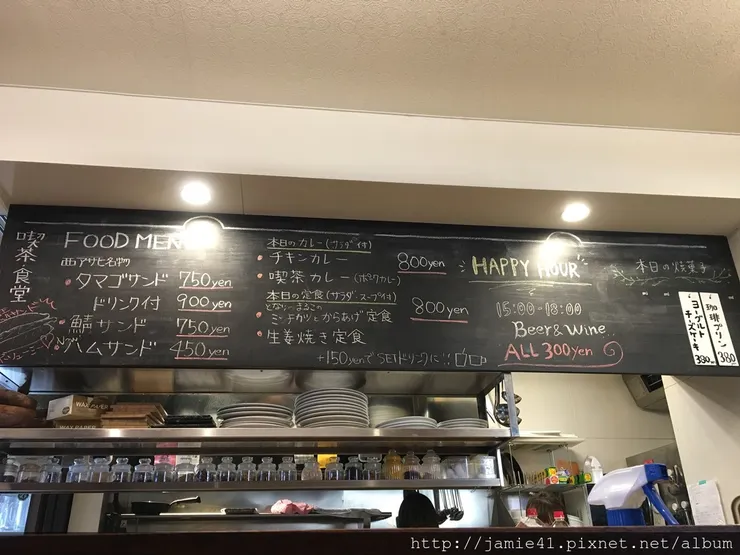 喫茶食堂
FOOD MEN
西アサヒ名物
・タマゴサンド 750yen
ドリンク付 900yen
・鯖サンド 750yen
・ハムサンド 450yen
本日のカレー(サラダ付) 800yen
・チキンカレー
・喫茶カレー(ポークカレー)
本日の定食(サラダ スープ付) 800yen
・ミンチカツとからあげ定食
・生姜焼き定食
+150yenで SETドリンクに!!
HAPPY HOUR
15:00-18:00
Beer & Wine
ALL 300yen
本日の焼菓子
珈琲プリン 380
ヨーグルトチーズケーキ 380
WAX PAPER
WAX PAPER
http://jamie41.pixnet.net/album